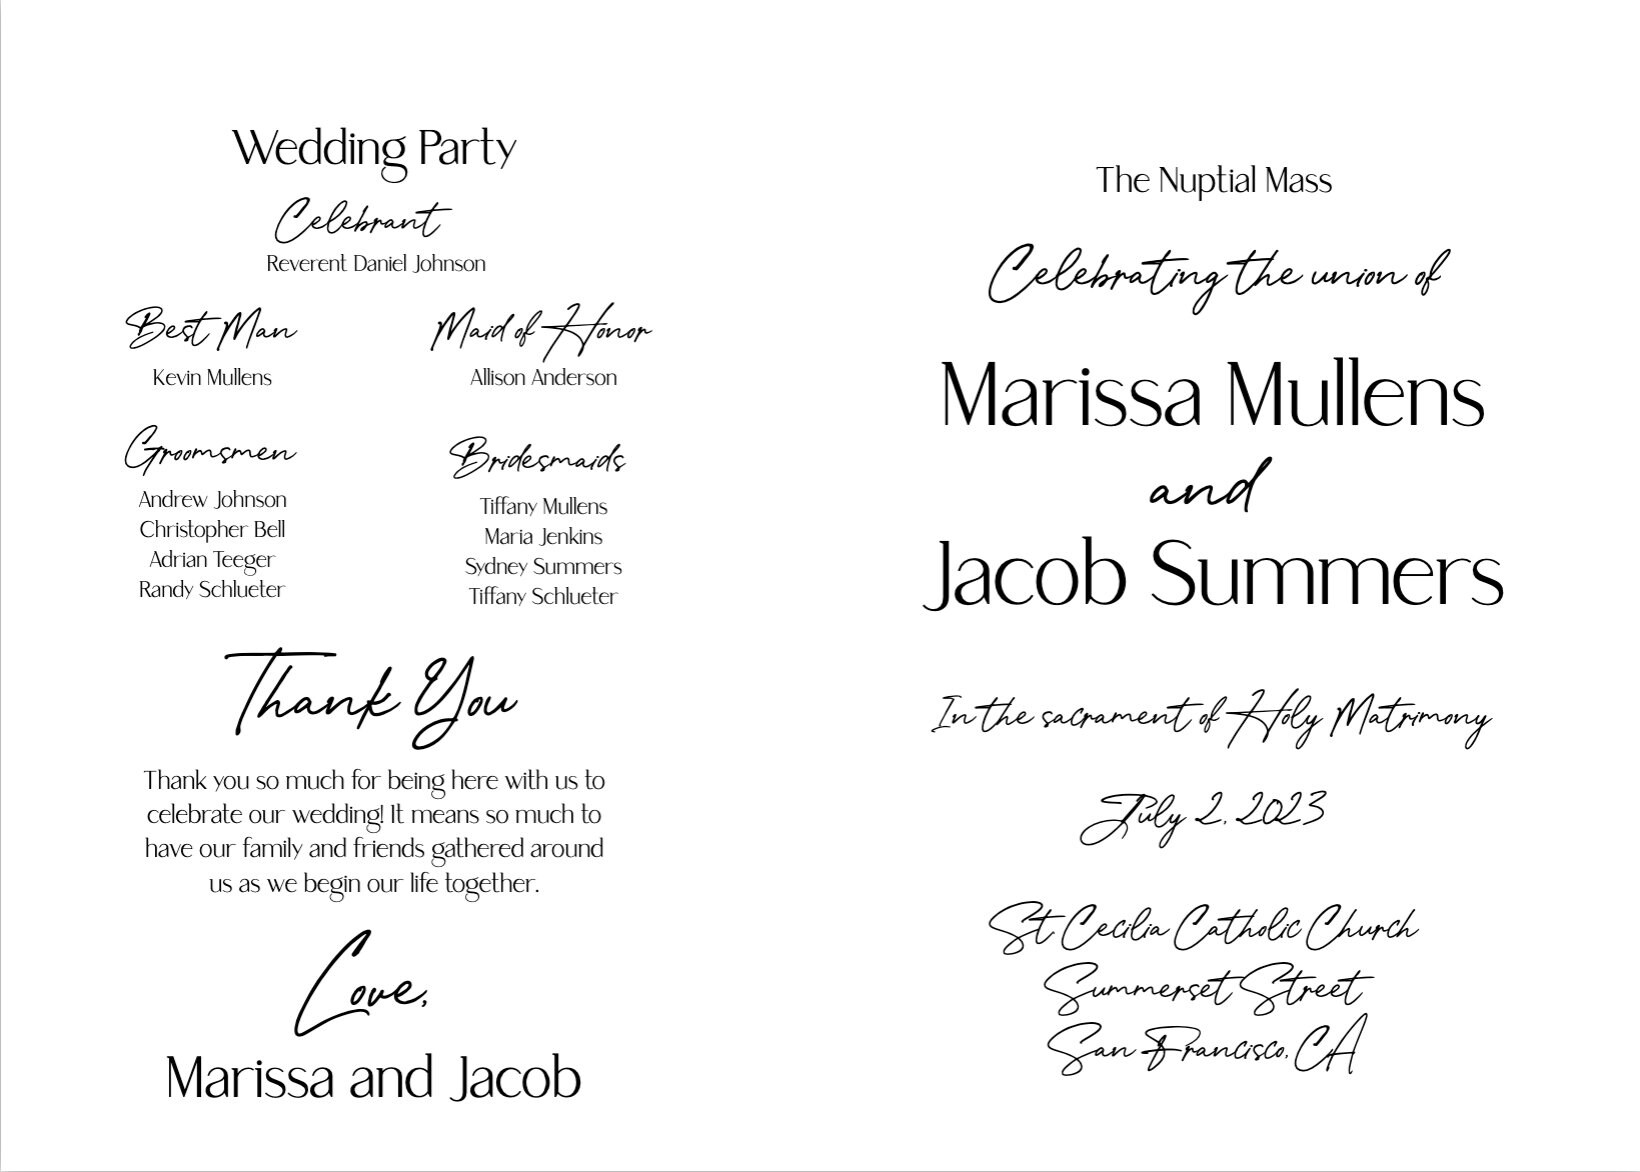 Wedding Party
Celebrant
Reverent Daniel Johnson
Best Man
Kevin Mullens
Maid of Honor
Allison Anderson
Groomsmen
Andrew Johnson
Christopher Bell
Adrian Teeger
Randy Schlueter
Bridesmaids
Tiffany Mullens
Maria Jenkins
Sydney Summers
Tiffany Schlueter
Thank You
Thank you so much for being here with us to
celebrate our wedding! It means so much to
have our family and friends gathered around
us as we begin our life together.
Love,
Marissa and Jacob
The Nuptial Mass
Celebrating the union of
Marissa Mullens
and
Jacob Summers
In the sacrament of Holy Matrimony
July 2, 2023
St Cecilia Catholic Church
Summerset Street
San Francisco, CA